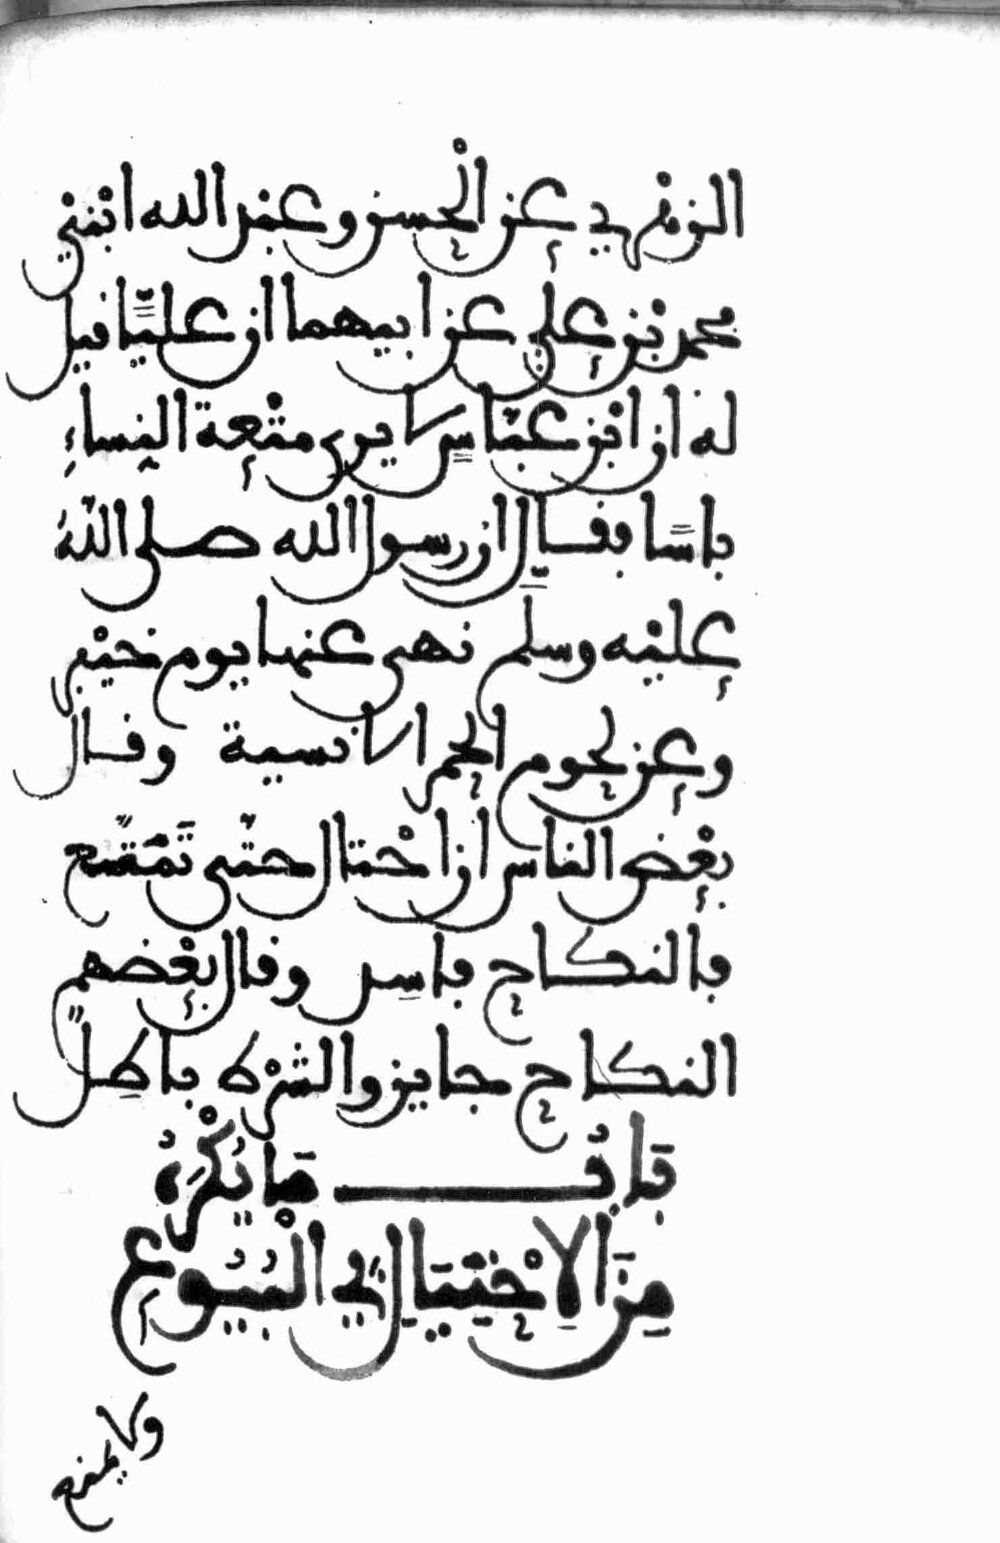 الزهري عن الحسن وعبد الله ابني
محمد بن علي عن ابيهما ان عليّا قيل
له ان ابن عبّاس لا يرى بمتعة النساء
باسا فقال ان رسول الله صلى اللّه
عليْه وسلم نهى عنها يوم خيْبر
وعن لحوم الحمر الانسية وقال
بعْض الناس ان احْتال حتّى تَمتّع
فالنكاح فاسد وقال بعْضهم
النكاح جايز والشرْط باطل
بَابُ مَا يُكْرَهُ
مِنَ الاِحْتِيَالِ فِي الْبُيُوعِ
ولا يمنع